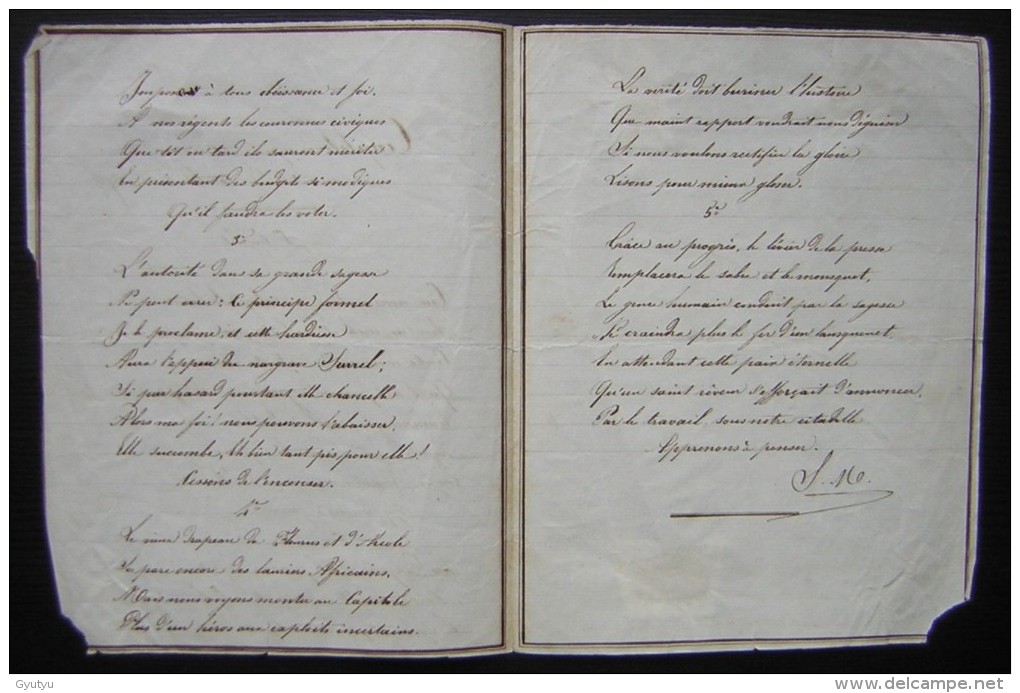 Imposent à tous obéissance et foi.
A nos régents les couronnes civiques
Que tôt ou tard ils sauront mériter
En présentant des budgets si modiques
Qu'il faudra les voter.
3e
L'autorité dans sa grande sagesse
Ne peut errer: Ce principe formel
Je le proclame, et cette hardiesse
Aura l'appui du margrave Surrel;
Si par hasard pourtant elle chancelle
Alors ma foi! nous pouvons l'abaisser,
Elle succombe, Eh bien tant pis pour elle!
Cessons de l'encenser.
4e
Le vieux drapeau de Fleurus et d'Arcole
Se pare encore des lauriers Africains,
Mais nous voyons monter au Capitole
Plus d'un héros aux exploits incertains.
La vérité doit buriner l'histoire
Que maint rapport voudrait nous déguiser
Si nous voulons rectifier la gloire
Lisons pour mieux gloser.
5e
Grâce au progrès, le levier de la presse
Remplacera le sabre et le mousquet,
Le genre humain conduit par la sagesse
Ne craindra plus le fer d'un lansquenet.
En attendant cette paix éternelle
Qu'un saint rêveur s'efforçait d'annoncer,
Par le travail, sous notre citadelle
Apprenons à penser.
S. M.
Gyutyu
www.delcampe.net